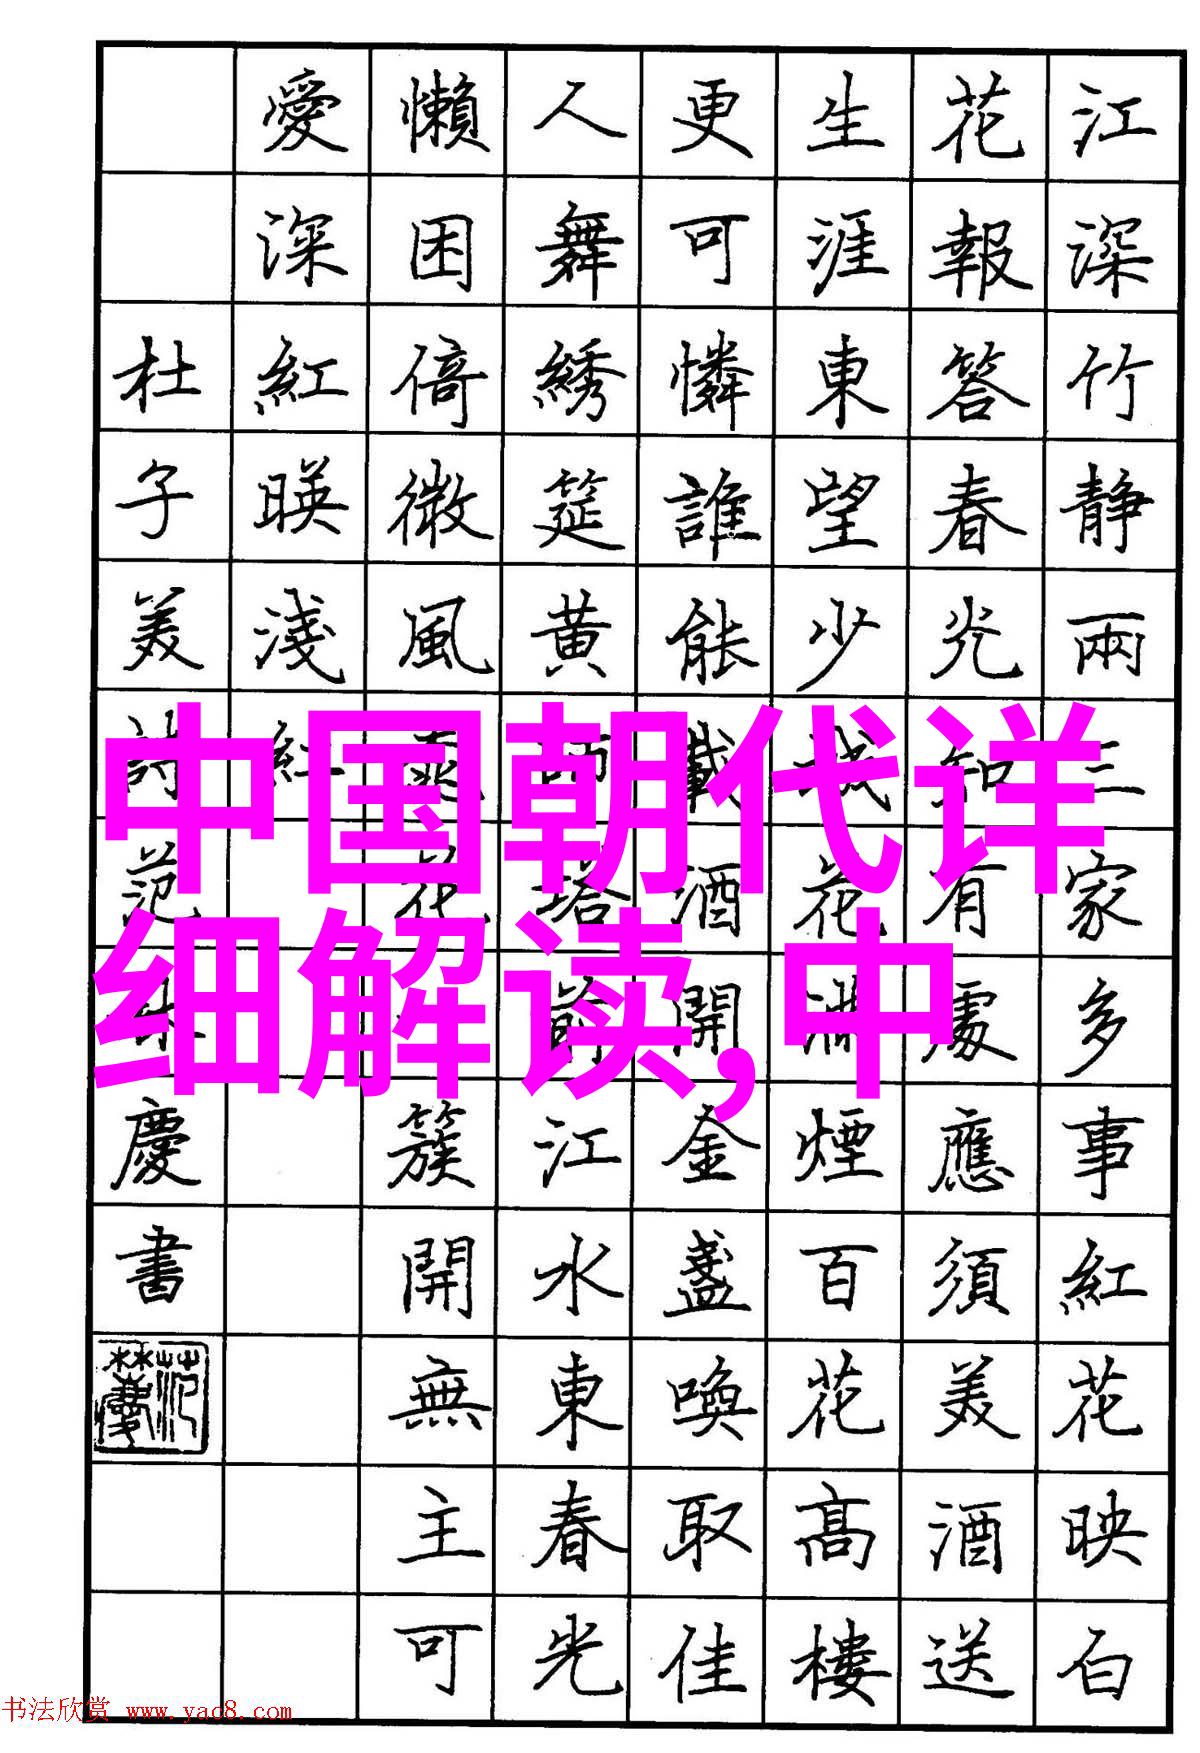 江深竹静兩三家多事紅花映白
花報答春光知有處應須美酒送
生涯東望少城花滿煙百花高樓
更可憐誰能載酒開金盞喚取佳
人舞綉筵黄師塔前江水東春光
懶困倚微風花簇開無主可
愛深紅暎淺紅
杜子美詩范林慶書
中国朝代详
细解读,中
书法欣赏 www.yac8.com